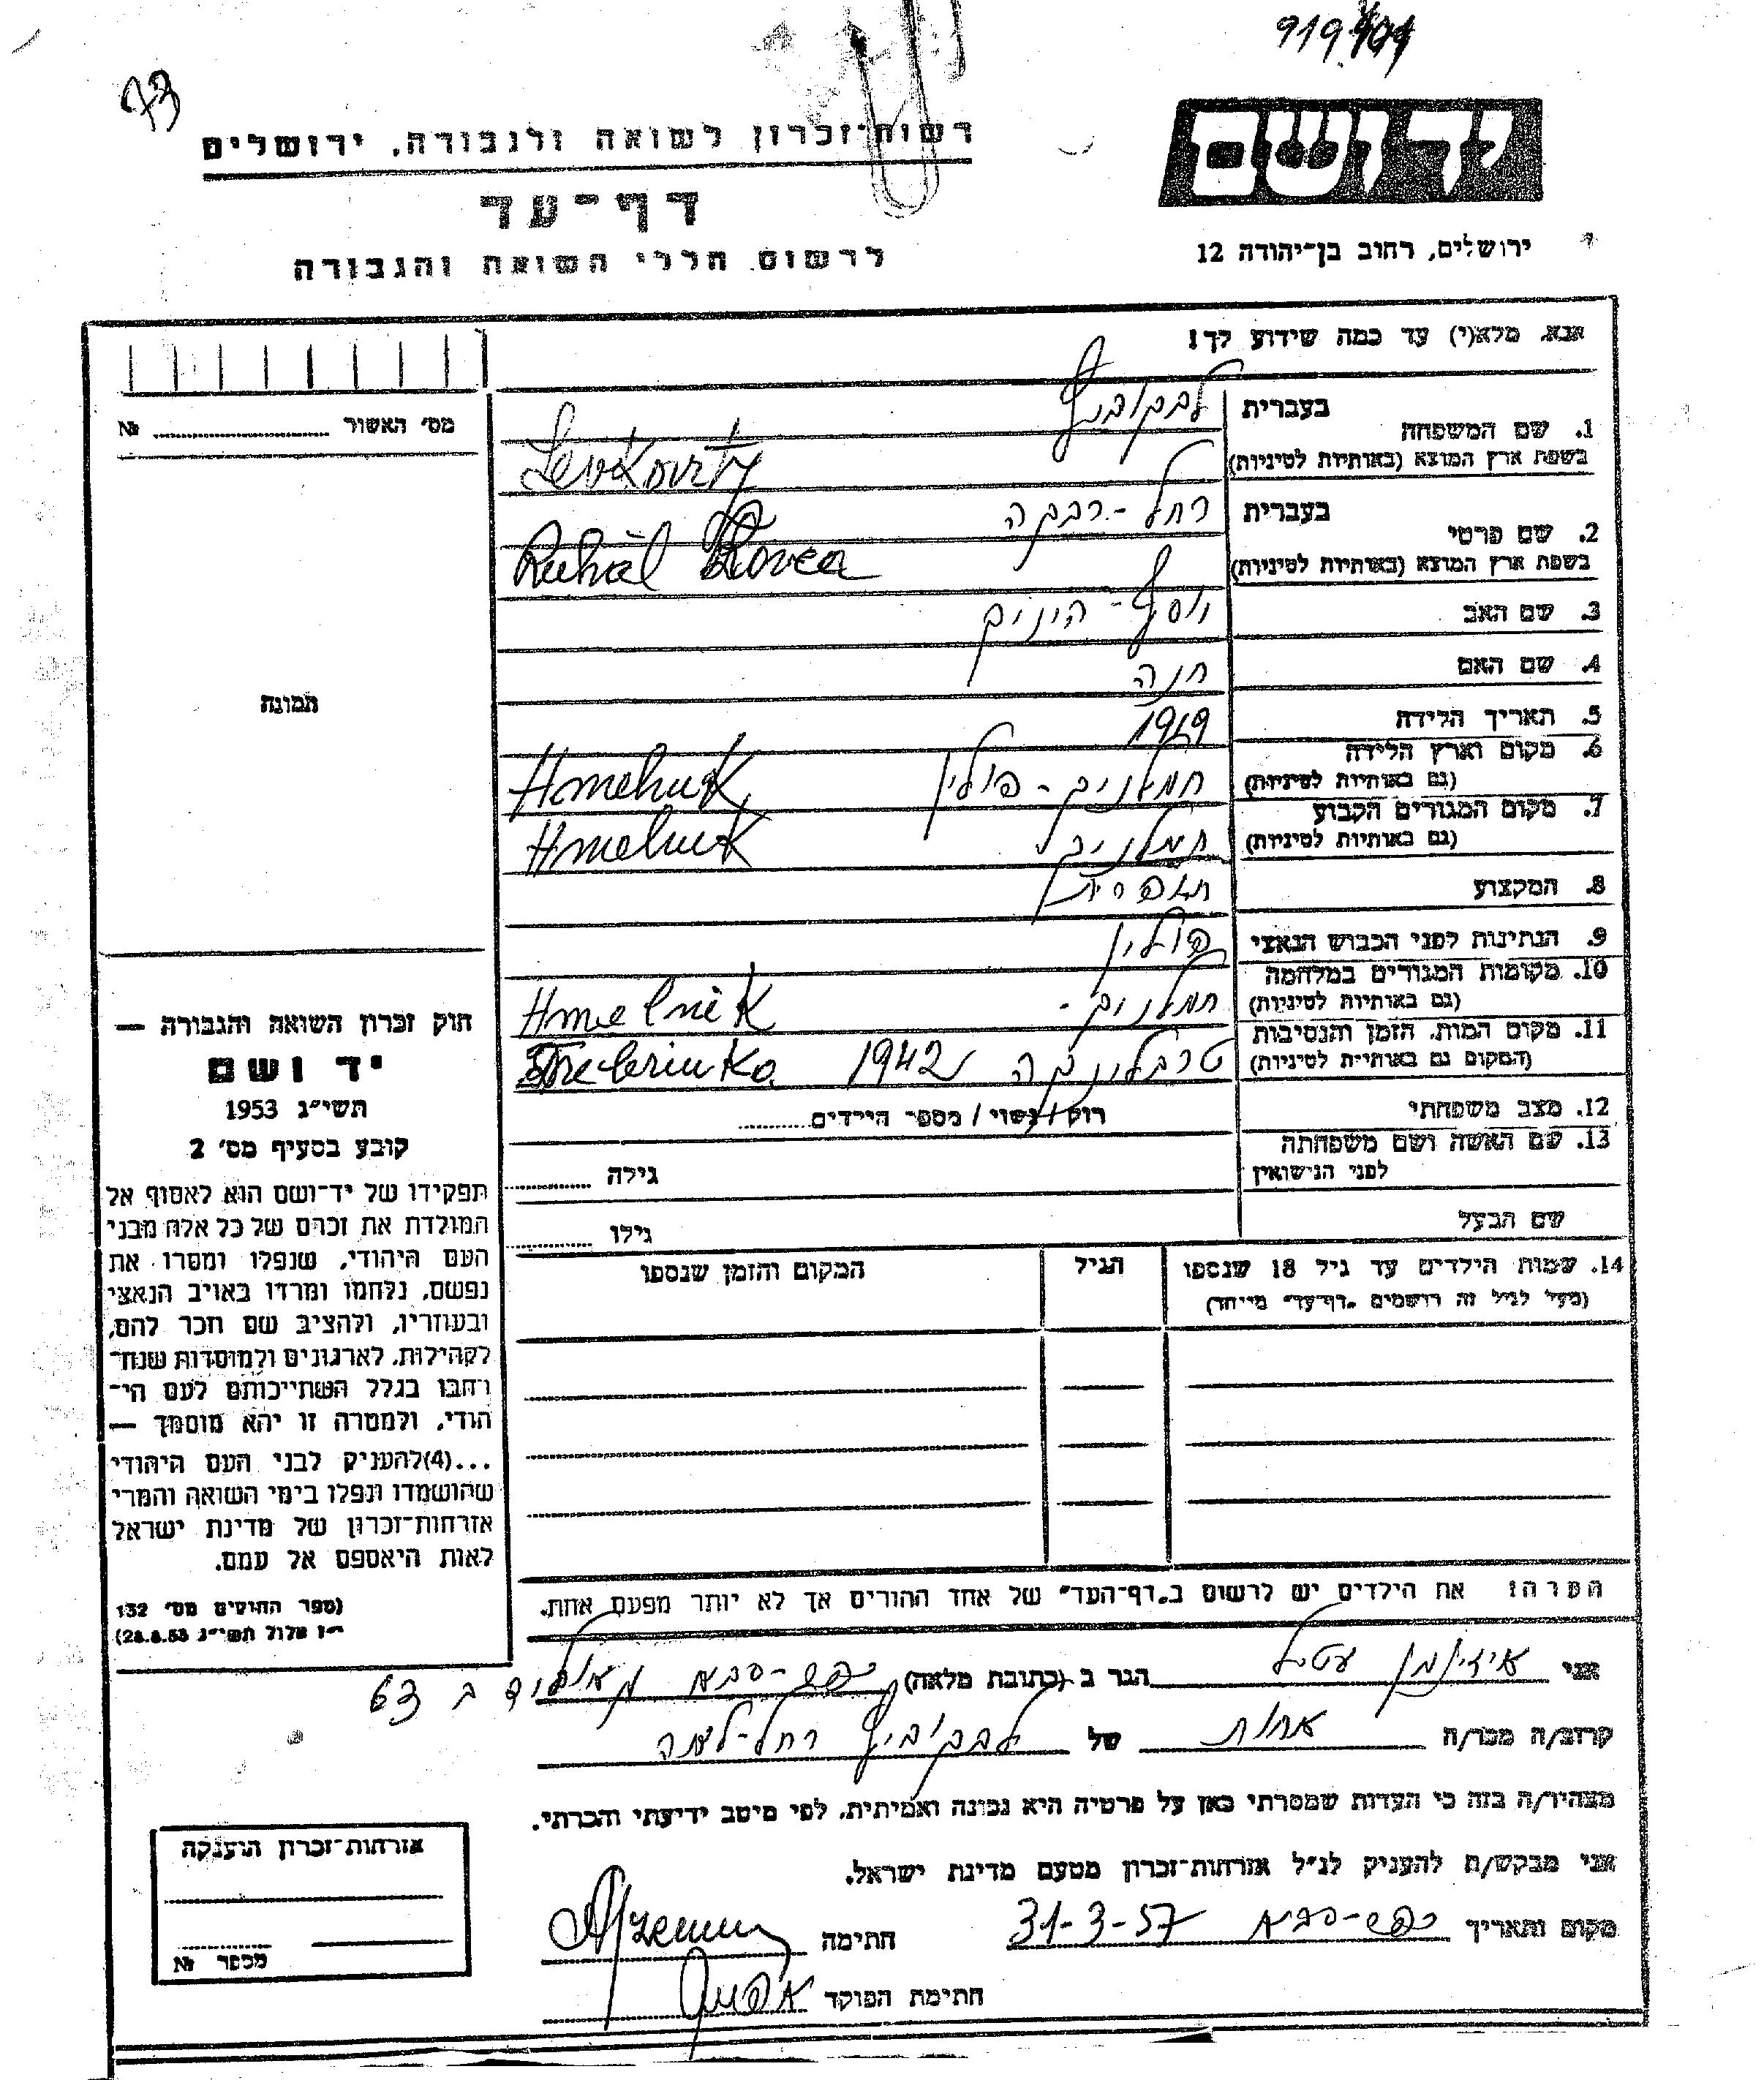 919404
73
יד ושם
רשות-זכרון לשואה ולגבורה, ירושלים
דף-עד
לרשום חללי השואה והגבורה
ירושלים, רחוב בן-יהודה 12
אנא, מלא(י) עד כמה שידוע לך!
מס' האשור № 
תמונה
1. שם המשפחה בעברית לבקוביץ
בשפת ארץ המוצא (באותיות לטיניות) Levkovitz
2. שם פרטי בעברית רחל-רבקה
בשפת ארץ המוצא (באותיות לטיניות) Ruhal
3. שם האב יוסף-
4. שם האם חנה
5. תאריך הלידה 1919
6. מקום וארץ הלידה חמלניק-פולין
(גם באותיות לטיניות) Hmelnik
7. מקום המגורים הקבוע חמלניק
(גם באותיות לטיניות) Hmelnik
8. המקצוע תופרת
9. הנתינות לפני הכבוש הנאצי פולין
10. מקומות המגורים במלחמה חמלניק-
(גם באותיות לטיניות) Hmelnik
11. מקום המות, הזמן והנסיבות טרבלינקה 1942
(המקום גם באותיות לטיניות) Treblinka
12. מצב משפחתי רווק / נשוי / מספר הילדים
13. שם האשה ושם משפחתה
לפני הנישואין גילה
שם הבעל גילו
14. שמות הילדים עד גיל 18 שנספו הגיל המקום והזמן שנספו
(מעל לגיל זה רושמים "דף-עד" מיוחד)
חוק זכרון השואה והגבורה —
יד ושם
תשי"ג 1953
קובע בסעיף מס' 2
תפקידו של יד-ושם הוא לאסוף אל
המולדת את זכרם של כל אלה מבני
העם היהודי, שנפלו ומסרו את
נפשם, נלחמו ומרדו באויב הנאצי
ובעוזריו, ולהציב שם וזכר להם,
לקהילות, לארגונים ולמוסדות שנח-
רבו בגלל השתייכותם לעם הי-
הודי, ולמטרה זו יהא מוסמך —
...(4)להעניק לבני העם היהודי
שהושמדו ונפלו בימי השואה והמרי
אזרחות-זכרון של מדינת ישראל
לאות היאספם אל עמם.
(ספר החוקים מס' 132
י"ז אלול תשי"ג 28.8.53)
הערה! את הילדים יש לרשום ב"דף-העד" של אחד ההורים אך לא יותר מפעם אחת.
אני אייזנמן הגר ב (כתובת מלאה) כפר-סבא ב 63
קרוב/ה מכר/ה אחות של לבקוביץ רחל-
מצהיר/ה בזה כי העדות שמסרתי כאן על פרטיה היא נכונה ואמיתית, לפי מיטב ידיעתי והכרתי.
אני מבקש/ת להעניק לנ"ל אזרחות-זכרון מטעם מדינת ישראל.
מקום ותאריך כפר-סבא 31-3-57 חתימה
חתימת הפוקד
אזרחות-זכרון הוענקה
מספר №